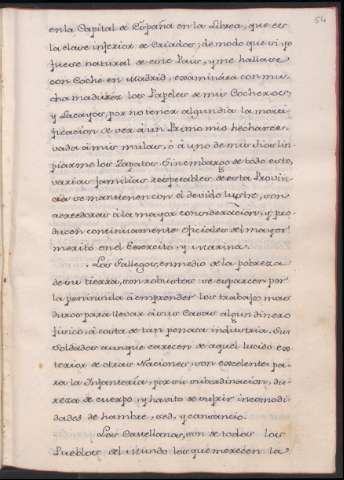 54
en la Capital de España en la Librea, que es
la clave inferior de Criados; de modo que si yo
fuese natural de este Pais, y me hallare
con Coche en Madrid, examinára con mu-
cha madurez los Papeles de mis Cocheros,
y Lacayos, por no tener algun dia la morti-
ficacion de ver à un Primo mio hechar ce-
vada à mis mulas, ó à uno de mis tios lim-
piarme los Zapatos. Sin embargo de todo esto,
varias familias respetables de esta Provin-
cia se mantenen con el devido lustre, son
acreedoras à la mayor consideracion, y pro-
ducen continuamente oficiales del mayor
merito en el Exercito, y marina.
Los Gallegos, en medio de la pobreza
de su tierra, son robustos: se esparcen por
la peninsula à emprender los trabajos mas
duros para llevar à sus Casas algun dinero
fisico, à costa de tan penosa industria. Sus
Soldados aunque carecen de aquel lucido ex-
terior de otras Naciones, son excelentes pa-
ra la Infanteria, por su subordinacion, du-
reza de cuerpo, y havito de sufrir incomodi-
dades de hambre, sed, y cansancio.
Los Castellanos, son de todos los
Pueblos del Mundo los que merecen la